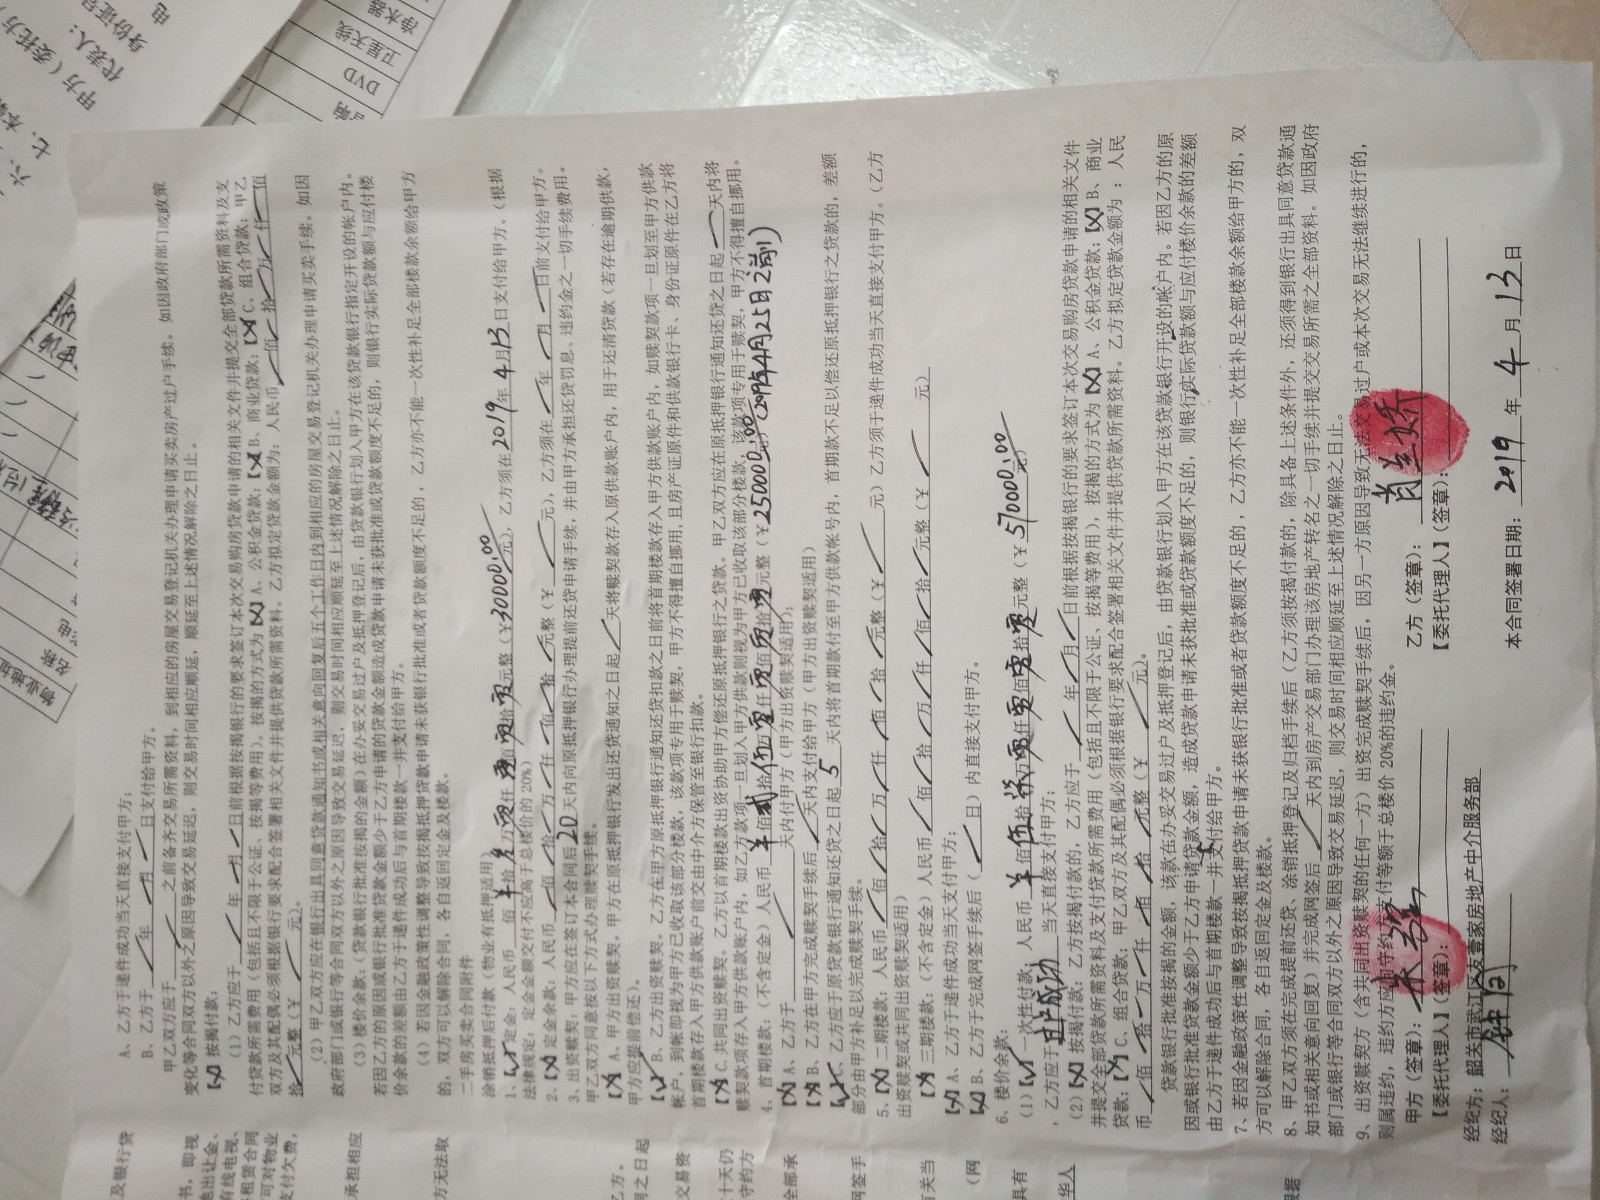 A、乙方于递件成功当天直接支付甲方;
B、乙方于 年 月 日支付给甲方。
甲乙双方应于 之前备齐交易所需资料,到相应的房屋交易登记机关办理申请买卖房产过户手续。如因政府部门或政策
变化等合同双方以外之原因导致交易延迟,则交易时间相应顺延,顺延至上述情况解除之日止。
按揭付款:
(1)乙方应于 年 月 日前根据按揭银行的要求签订本次交易购房贷款申请的相关文件并提交全部贷款所需资料及支
付贷款所需费用(包括且不限于公证、按揭等费用)。按揭的方式为【X】A、公积金贷款;【X】B、商业贷款;【X】C、组合贷款;甲乙
双方及其配偶必须根据银行要求配合签署相关文件并提供贷款所需资料,乙方拟定贷款金额为:人民币 佰 拾 万 仟 佰
拾 元整(¥ 元)。
(2)甲乙双方应在银行出具同意贷款通知书或相关意向回复后五个工作日内到相应的房屋交易登记机关办理申请买卖手续。如因
政府部门或银行等合同双方以外之原因导致交易延迟,则交易时间相应顺延至上述情况解除之日止。
(3)楼价余款:(贷款银行批准按揭的金额)在办妥交易过户及抵押登记后,由贷款银行划入甲方在该贷款银行指定开设的帐户内。
若因乙方的原因或银行批准贷款金额少于乙方申请的贷款金额造成贷款申请未获批准或贷款额度不足的,则银行实际贷款额与应付楼
价余款的差额由乙方于递件成功后与首期楼款一并支付给甲方。
(4)若因金融政策性调整导致按揭抵押贷款申请未获银行批准或者贷款额度不足的,乙方亦不能一次性补足全部楼款余额给甲方
的,双方可以解除合同,各自返回定金及楼款。
二手房买卖合同附件
涂销抵押后付款(物业有抵押适用)
1、定金:人民币 佰 拾 万 仟 佰 拾 元整(¥30000.00元),乙方须在2019年4月13日支付给甲方。(根据
法律规定:定金金额交付不应高于总楼价的20%)
2、【X】定金余款:人民币 佰 拾 万 仟 佰 拾 元整(¥ 元),乙方须在 年 月 日前支付给甲方。
3、出资赎契:甲方应在签订本合同后20天内向原抵押银行办理提前还贷申请手续,并由甲方承担还贷罚息、违约金之一切手续费用。
甲乙双方同意按以下方式办理赎契手续。
【X】A、甲方出资赎契。甲方在原抵押银行发出还贷通知之日起 天将赎契款存入原供款账户内,用于还清贷款(若存在逾期供款,
甲方应提前偿还)。
B、乙方出资赎契。乙方在甲方原抵押银行通知还贷扣款之日前将首期楼款存入甲方供款账户内,如赎契款项一旦划至甲方供款
帐户,到帐即视为甲方已收取该部分楼款,该款项专用于赎契,甲方不得擅自挪用,且房产证原件和供款银行卡、身份证原件在乙方将
首期楼款存入甲方供款账户前交由中介方保管至银行扣款。
【X】C、共同出资赎契。乙方以首期楼款出资协助甲方偿还原抵押银行之贷款。甲乙双方应在原抵押银行通知还贷之日起 天内将
赎契款项存入甲方供款账户内,如乙方款项一旦划入甲方供款则视为甲方已收取该部分楼款,该款项专用于赎契,甲方不得擅自挪用。
4、首期楼款:(不含定金)人民币 佰贰拾伍万零仟零佰零拾零元整(¥250000.00元)(2019年4月25日之前)
【X】A、乙方于 天内付甲方(甲方出资赎契适用);
【X】B、乙方在甲方完成赎契手续后 天内支付给甲方(甲方出资赎契适用)
C、乙方应于原贷款银行通知还贷之日起5天内将首期款付至甲方供款帐号内,首期款不足以偿还原抵押银行之贷款的,差额
部分由甲方补足以完成赎契手续。
5、【X】二期楼款:人民币 佰 拾 万 仟 佰 拾 元整(¥ 元)乙方须于递件成功当天直接支付甲方。(乙方
出资赎契或共同出资赎契适用)
【X】三期楼款:(不含定金)人民币 佰 拾 万 仟 佰 拾 元整(¥ 元)
【X】A、乙方于递件成功当天支付甲方;
【X】B、乙方于完成网签手续后( 日)内直接支付甲方。
6、楼价余款:
(1)一次性付款,人民币 佰伍拾柒万零仟零佰零拾零元整(¥570000.00元)
,乙方应于 过户成功 当天直接支付甲方;
(2)【X】按揭付款:乙方按揭付款的,乙方应于 年 月 日前根据按揭银行的要求签订本次交易购房贷款申请的相关文件
并提交全部贷款所需资料及支付贷款所需费用(包括且不限于公证、按揭等费用),按揭的方式为【X】A、公积金贷款;【X】B、商业
贷款;【X】C、组合贷款;甲乙双方及其配偶必须根据银行要求配合签署相关文件并提供贷款所需资料。乙方拟定贷款金额为:人民
币 佰 拾 万 仟 佰 拾 元整(¥ 元)。
贷款银行批准按揭的金额,该款在办妥交易过户及抵押登记后,由贷款银行划入甲方在该贷款银行开设的帐户内。若因乙方的原
因或银行批准贷款金额少于乙方申请贷款金额,造成贷款申请未获批准或贷款额度不足的,则银行实际贷款额与应付楼价余款的差额
由乙方于递件成功后与首期楼款一并支付给甲方。
7、若因金融政策性调整导致按揭抵押贷款申请未获银行批准或者贷款额度不足的,乙方亦不能一次性补足全部楼款余额给甲方的,双
方可以解除合同,各自返回定金及楼款。
8、甲乙双方须在完成提前还贷、涂销抵押登记及归档手续后(乙方须按揭付款的,除具备上述条件外,还须得到银行出具同意贷款通
知书或相关意向回复)并完成网签后 天内到房产交易部门办理该房地产转名之一切手续并提交交易所需之全部资料。如因政府
部门或银行等合同双方以外之原因导致交易延迟,则交易时间相应顺延至上述情况解除之日止。
9、出资赎契方(含共同出资赎契的任何一方)出资完成赎契手续后,因另一方原因导致无法交易过户或本次交易无法继续进行的,
则属违约,违约方应向守约方支付等额于总楼价20%的违约金。
甲方(签章): 乙方(签章):
【委托代理人】(签章): 【委托代理人】(签章):
经纪方:韶关市武江区友壹家房地产中介服务部
经纪人: 本合同签署日期:2019年4月13日
甲方(委托方
代表人:
身份证号
电
DVD
卫星天线
净水器
物业地址
名称
及银行贷
书,即视
有线电视、
租赁合同
可对物业
承担相应
方无法取
乙方。
司之日起
交易资
十天仍
守约方
全部承
网签手
有关当
(网
具有
华人
根据